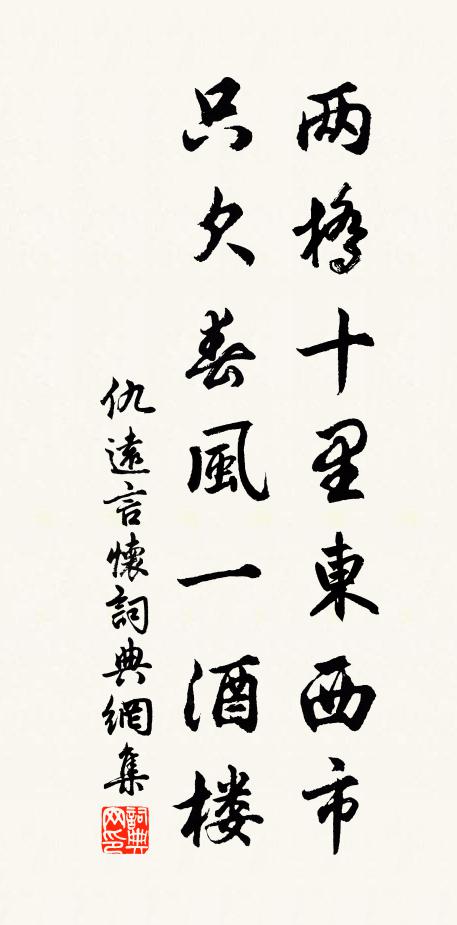 两橋十里東西市
只欠春風一酒楼
仇遠言懷詞典網集
詞典网印